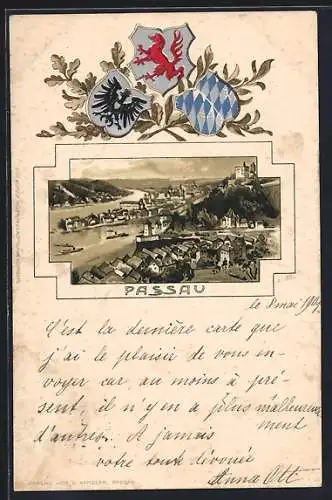 PASSAU
le 8 mai 190
C'est la dernière carte que
j'ai le plaisir de vous en-
voyer car au moins à pré-
sent, il n'y en a plus malheureuse
ment
d'autres. A jamais
votre toute dévouée
Anna Ott